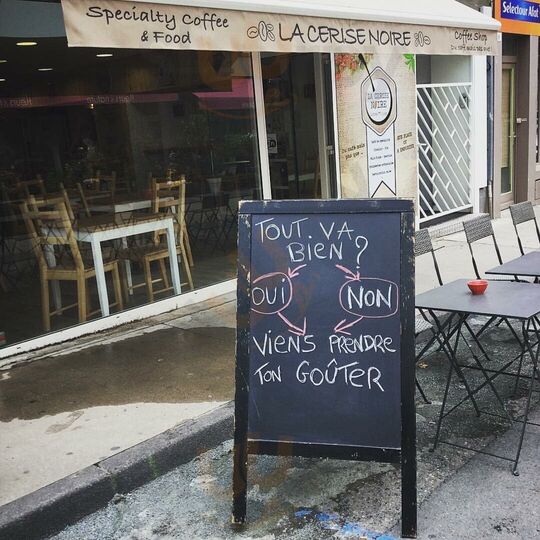 Specialty Coffee
& Food
LA CERISE NOIRE
Coffee Shop
Selectour Afat
LA CERISE
NOIRE
TOUT. VA
BIEN ?
OUI NON
VIENS PRENDRE
TON GOÛTER